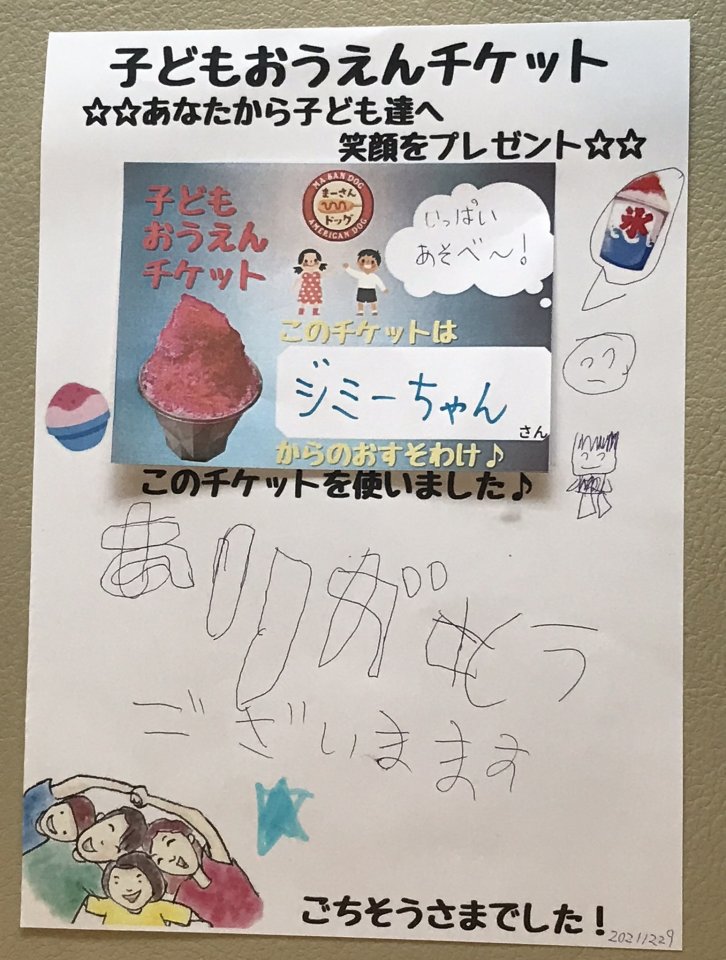 子どもおうえんチケット
☆☆あなたから子ども達へ
笑顔をプレゼント☆☆
子ども
おうえん
チケット
MA SAN DOG
まーさん
ドッグ
AMERICAN DOG
いっぱい
あそべ〜!
氷
このチケットは
ジミーちゃん
さん
からのおすそわけ♪
このチケットを使いました♪
ありがとう
ございまます
ごちそうさまでした!
20211229